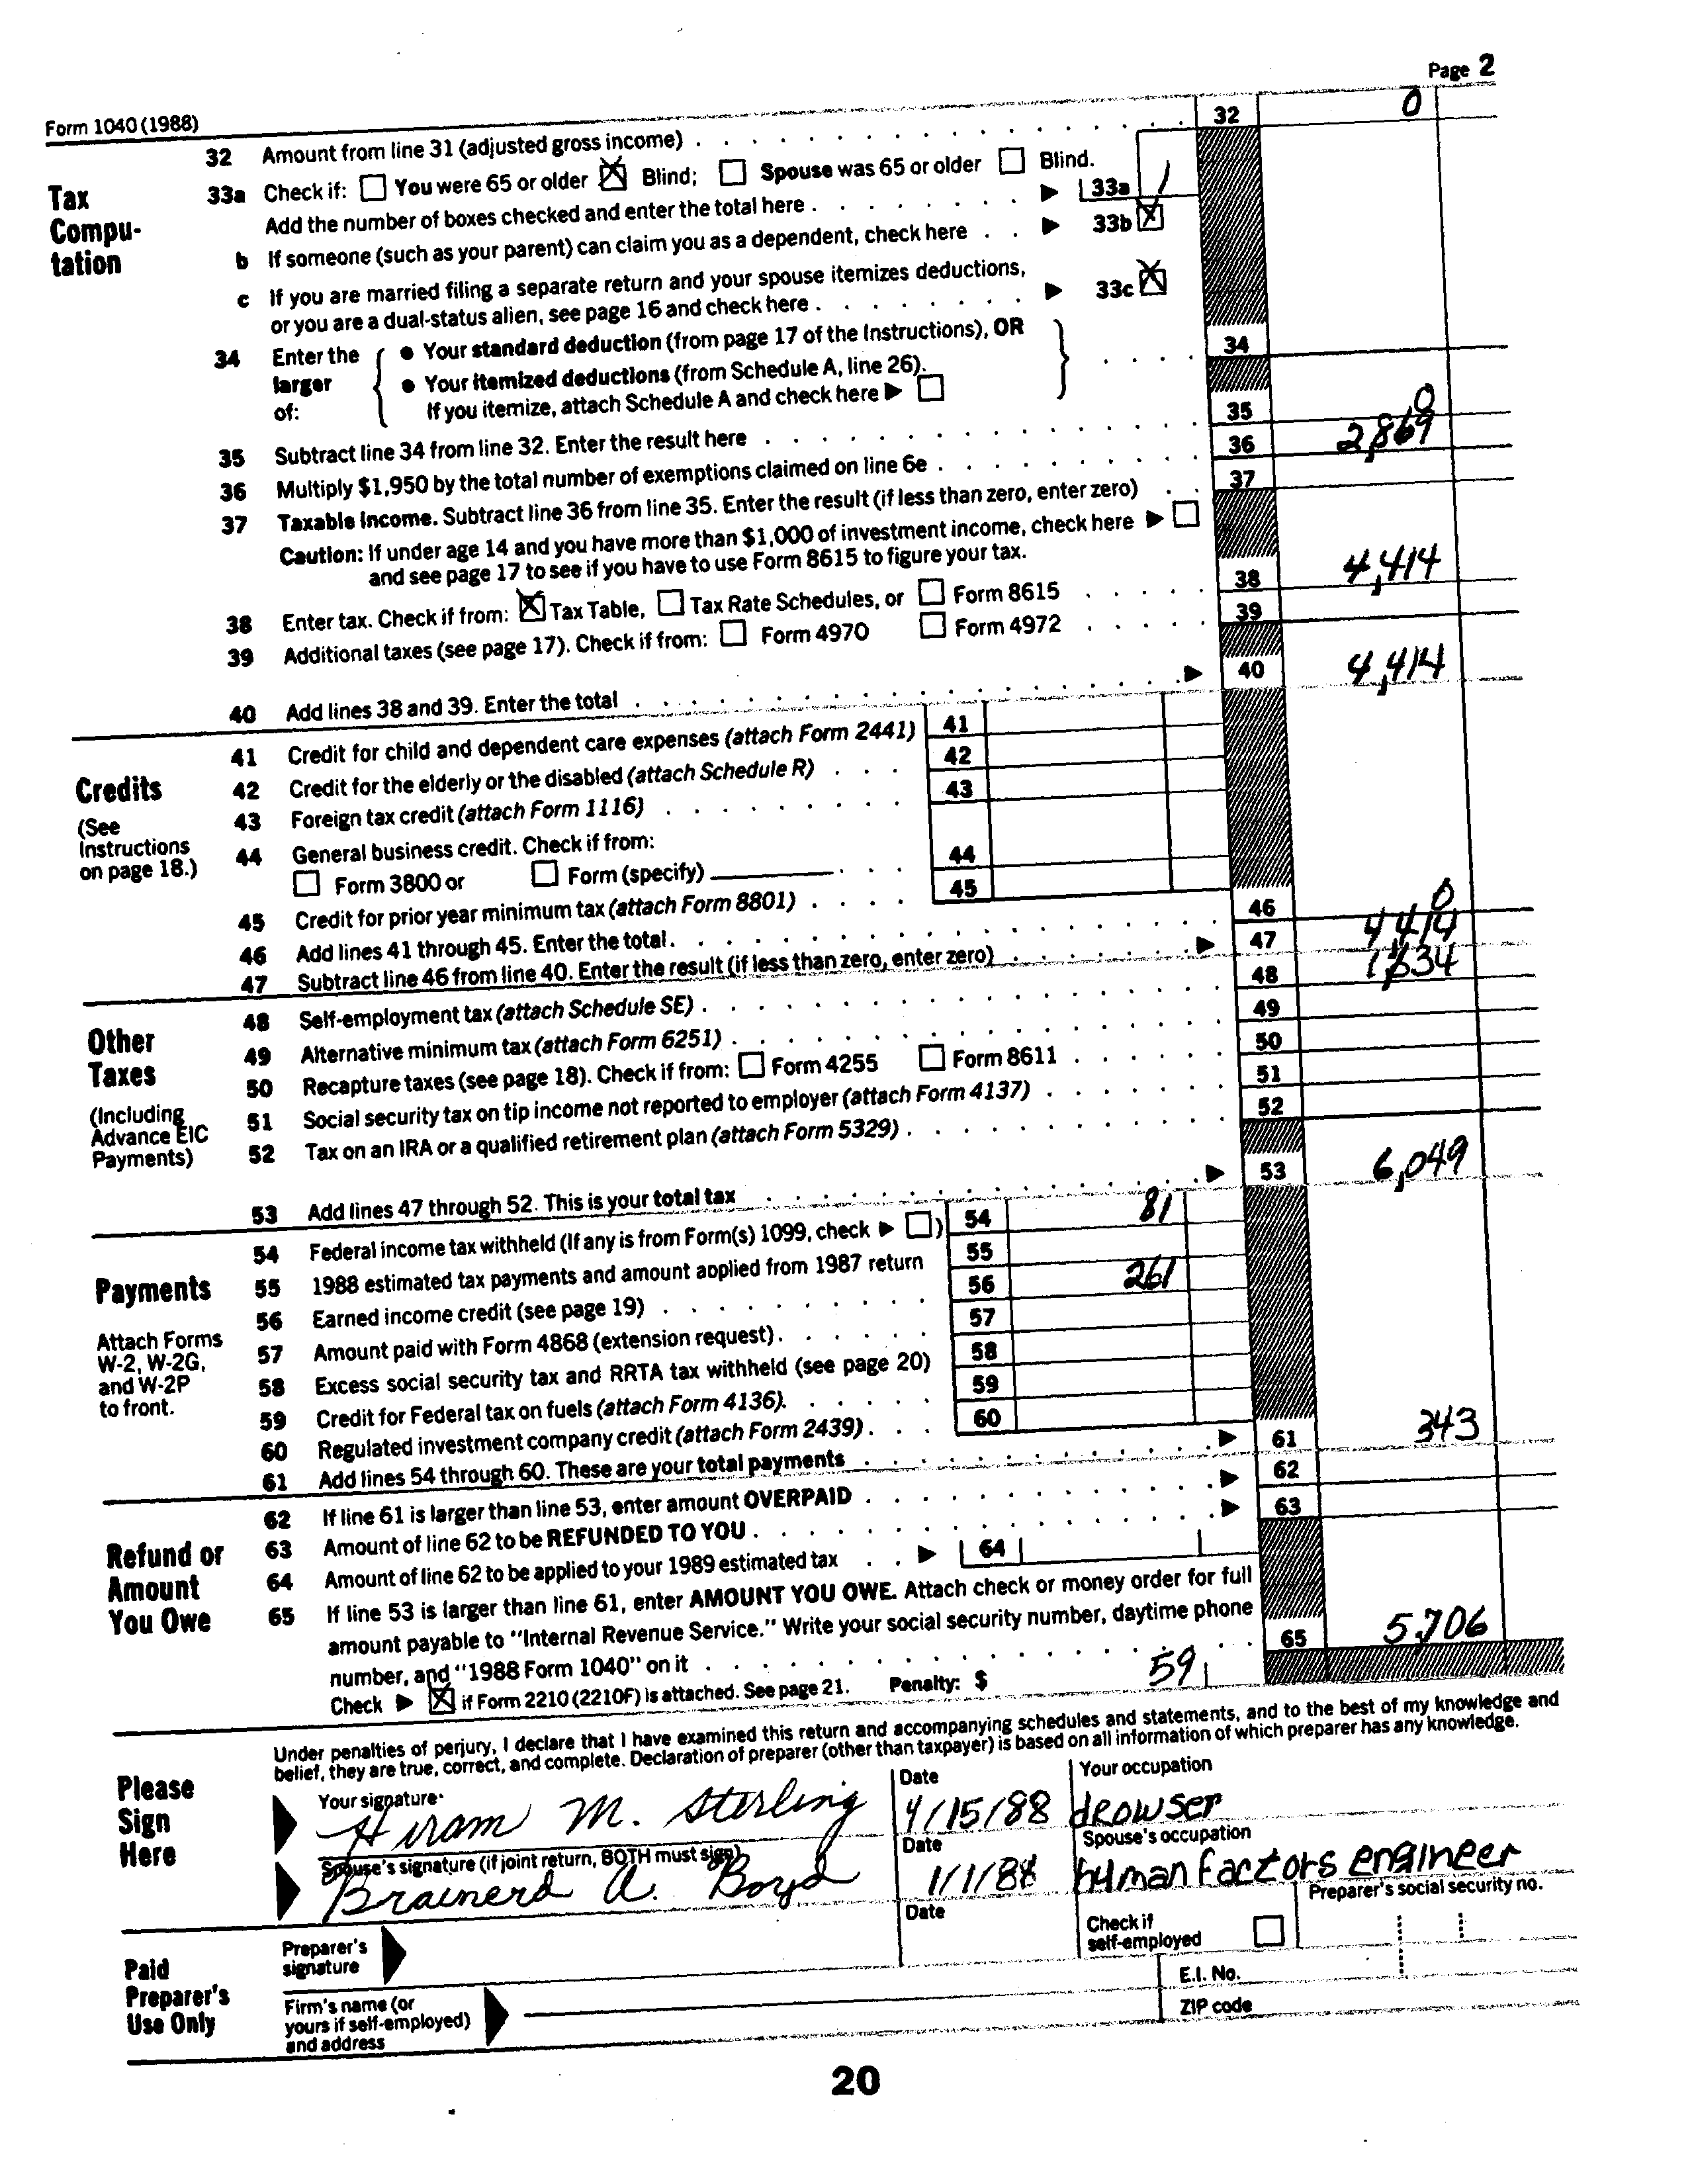 Page 2
Form 1040 (1988)
32 Amount from line 31 (adjusted gross income) 32 0
Tax Compu-tation
33a Check if: You were 65 or older Blind; Spouse was 65 or older Blind.
Add the number of boxes checked and enter the total here 33a 1
b If someone (such as your parent) can claim you as a dependent, check here 33b
c If you are married filing a separate return and your spouse itemizes deductions,
or you are a dual-status alien, see page 16 and check here 33c
34 Enter the larger of:
• Your standard deduction (from page 17 of the Instructions), OR
• Your itemized deductions (from Schedule A, line 26).
If you itemize, attach Schedule A and check here 34
35 Subtract line 34 from line 32. Enter the result here 35 0
36 Multiply $1,950 by the total number of exemptions claimed on line 6e 36 2,869
37 Taxable income. Subtract line 36 from line 35. Enter the result (if less than zero, enter zero) 37
Caution: If under age 14 and you have more than $1,000 of investment income, check here
and see page 17 to see if you have to use Form 8615 to figure your tax.
38 Enter tax. Check if from: Tax Table, Tax Rate Schedules, or Form 8615 38 4,414
39 Additional taxes (see page 17). Check if from: Form 4970 Form 4972 39
40 Add lines 38 and 39. Enter the total 40 4,414
Credits
(See Instructions on page 18.)
41 Credit for child and dependent care expenses (attach Form 2441) 41
42 Credit for the elderly or the disabled (attach Schedule R) 42
43 Foreign tax credit (attach Form 1116) 43
44 General business credit. Check if from:
Form 3800 or Form (specify) 44
45 Credit for prior year minimum tax (attach Form 8801) 45
46 Add lines 41 through 45. Enter the total. 46 0
47 Subtract line 46 from line 40. Enter the result (if less than zero, enter zero) 47 4,414
Other Taxes
(Including Advance EIC Payments)
48 Self-employment tax (attach Schedule SE) 48
49 Alternative minimum tax (attach Form 6251) 49
50 Recapture taxes (see page 18). Check if from: Form 4255 Form 8611 50
51 Social security tax on tip income not reported to employer (attach Form 4137) 51
52 Tax on an IRA or a qualified retirement plan (attach Form 5329) 52
53 Add lines 47 through 52. This is your total tax 53 6,049
Payments
Attach Forms W-2, W-2G, and W-2P to front.
54 Federal income tax withheld (If any is from Form(s) 1099, check ) 54 81
55 1988 estimated tax payments and amount applied from 1987 return 55
56 Earned income credit (see page 19) 56 261
57 Amount paid with Form 4868 (extension request) 57
58 Excess social security tax and RRTA tax withheld (see page 20) 58
59 Credit for Federal tax on fuels (attach Form 4136) 59
60 Regulated investment company credit (attach Form 2439) 60
61 Add lines 54 through 60. These are your total payments 61 343
Refund or Amount You Owe
62 If line 61 is larger than line 53, enter amount OVERPAID 62
63 Amount of line 62 to be REFUNDED TO YOU 63
64 Amount of line 62 to be applied to your 1989 estimated tax 64
65 If line 53 is larger than line 61, enter AMOUNT YOU OWE. Attach check or money order for full
amount payable to "Internal Revenue Service." Write your social security number, daytime phone
number, and "1988 Form 1040" on it 65 5,706
Check if Form 2210 (2210F) is attached. See page 21. Penalty: $ 59
Please Sign Here
Under penalties of perjury, I declare that I have examined this return and accompanying schedules and statements, and to the best of my knowledge and
belief, they are true, correct, and complete. Declaration of preparer (other than taxpayer) is based on all information of which preparer has any knowledge.
Your signature Date Your occupation
Hiram M. Sterling 4/15/88 drowser
Spouse's signature (if joint return, BOTH must sign) Date Spouse's occupation
Brainerd A. Boyd 1/1/88 human factors engineer
Paid Preparer's Use Only
Preparer's signature Date Check if self-employed Preparer's social security no.
Firm's name (or yours if self-employed) and address
E.I. No.
ZIP code
20